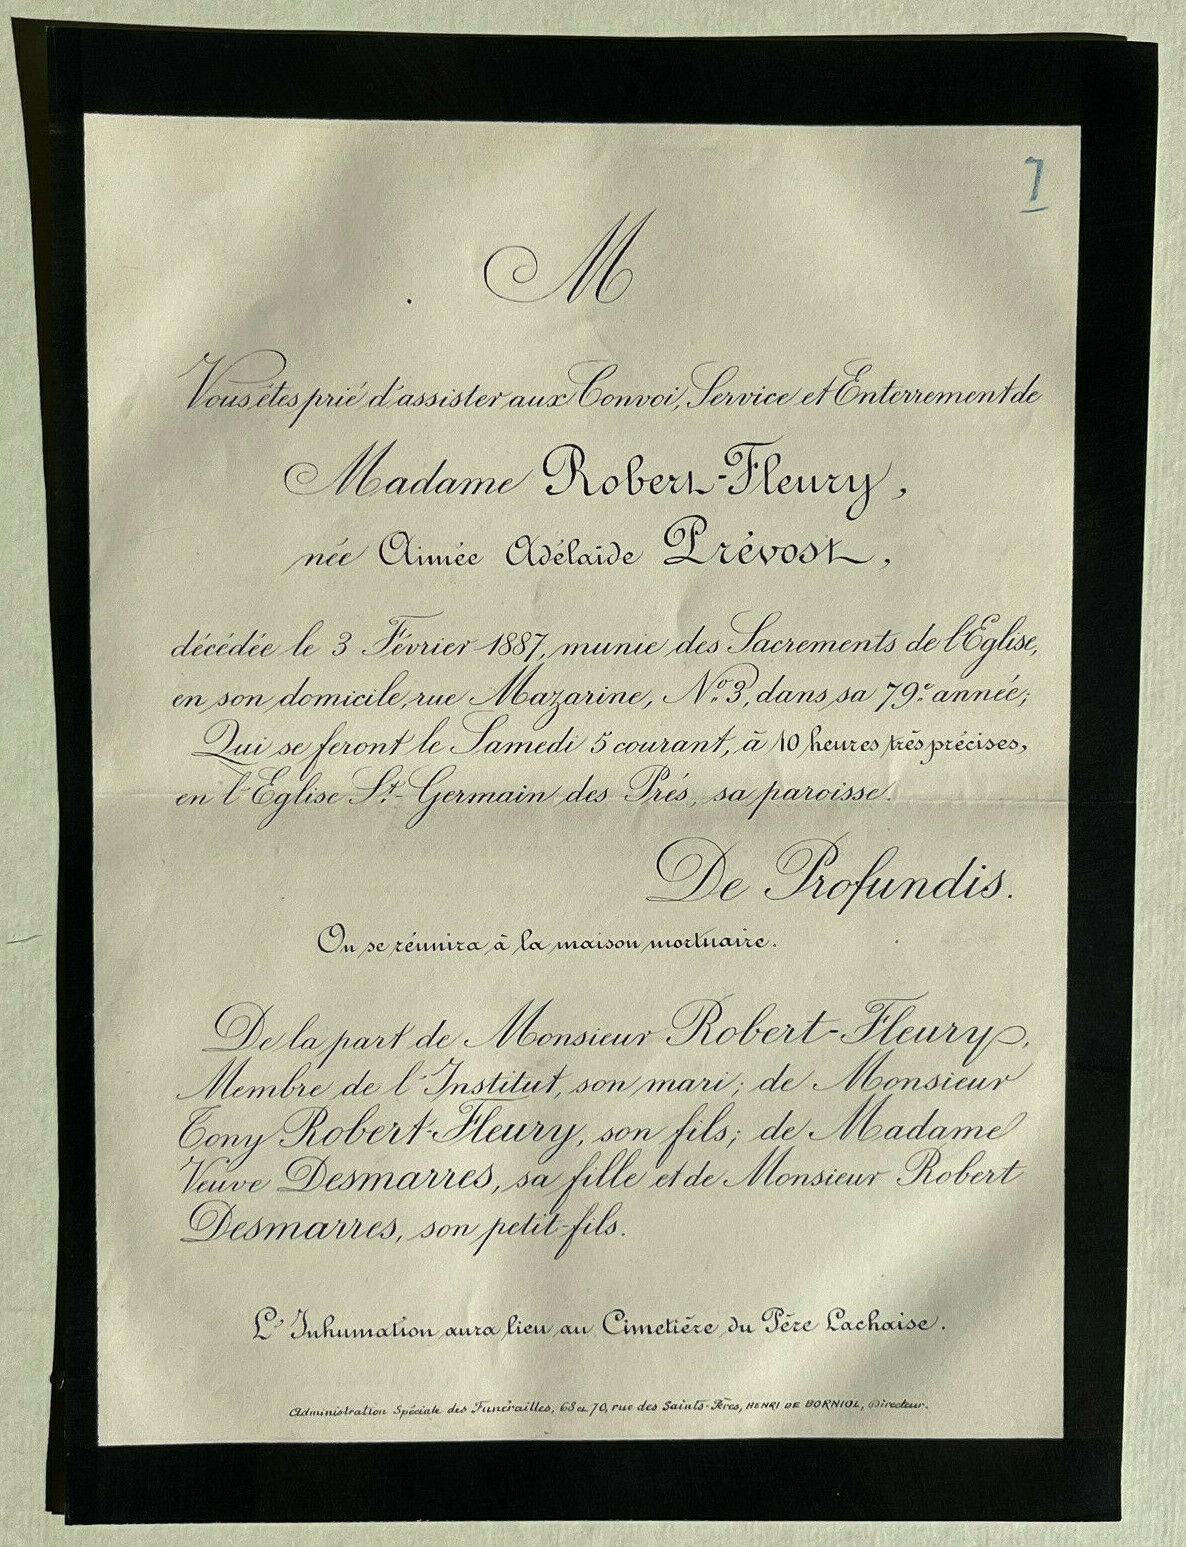 7
M
Vous êtes prié d'assister aux Convoi, Service et Enterrement de
Madame Robert-Fleury,
née Aimée Adélaïde Prévost,
décédée le 3 Février 1887, munie des Sacrements de l'Eglise,
en son domicile, rue Mazarine, No. 3, dans sa 79e. année;
Qui se feront le Samedi 5 courant, à 10 heures très précises,
en l'Eglise St.-Germain des Prés, sa paroisse.
De Profundis.
On se réunira à la maison mortuaire.
De la part de Monsieur Robert-Fleury,
Membre de l'Institut, son mari; de Monsieur
Tony Robert-Fleury, son fils; de Madame
Veuve Desmarres, sa fille et de Monsieur Robert
Desmarres, son petit-fils.
L'Inhumation aura lieu au Cimetière du Père Lachaise.
Administration Spéciale des Funérailles, 68 et 70, rue des Saints-Pères, HENRI DE BORNIOL, Directeur.